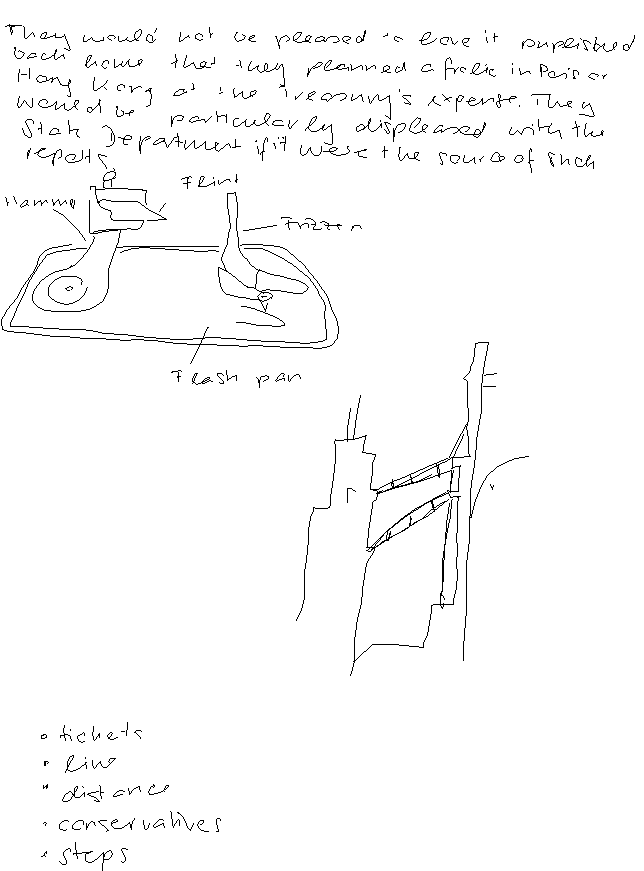 They would not be pleased to have it published
back home that they planned a frolic in Paris or
Hong Kong at the Treasury's expense. They
would be particularly displeased with the
State Department if it were the source of such
reports
Flint
Hammer
Frizzen
Flash pan
• tickets
• line
• distance
• conservatives
• steps